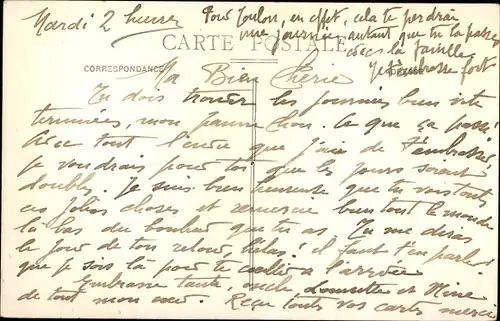 Mardi 2 heures
Pour Toulon, en effet, cela te perdrai
une journée, autant que tu la passes
avec la famille
Je t'embrasse fort
CARTE POSTALE
CORRESPONDANCE
Ma Bien Chérie
Tu dois trouver les journées bien vite
terminées, mon pauvre Chou. Ce que ça passe!
Avec tout l'envie que j'aie de t'embrasser
je voudrais pour toi que les jours soient
doubles. Je suis bien heureuse que tu vois toutes
ces jolies choses et remercie bien tout le monde
là bas du bonheur que tu as. Tu me diras
le jour de ton retour, hélas! il faut t'en parler!
que je sois là pour te cueillir à l'arrivée
Embrasse tante, oncle, et Mine
de tout mon cœur. Reçu toutes vos cartes merci